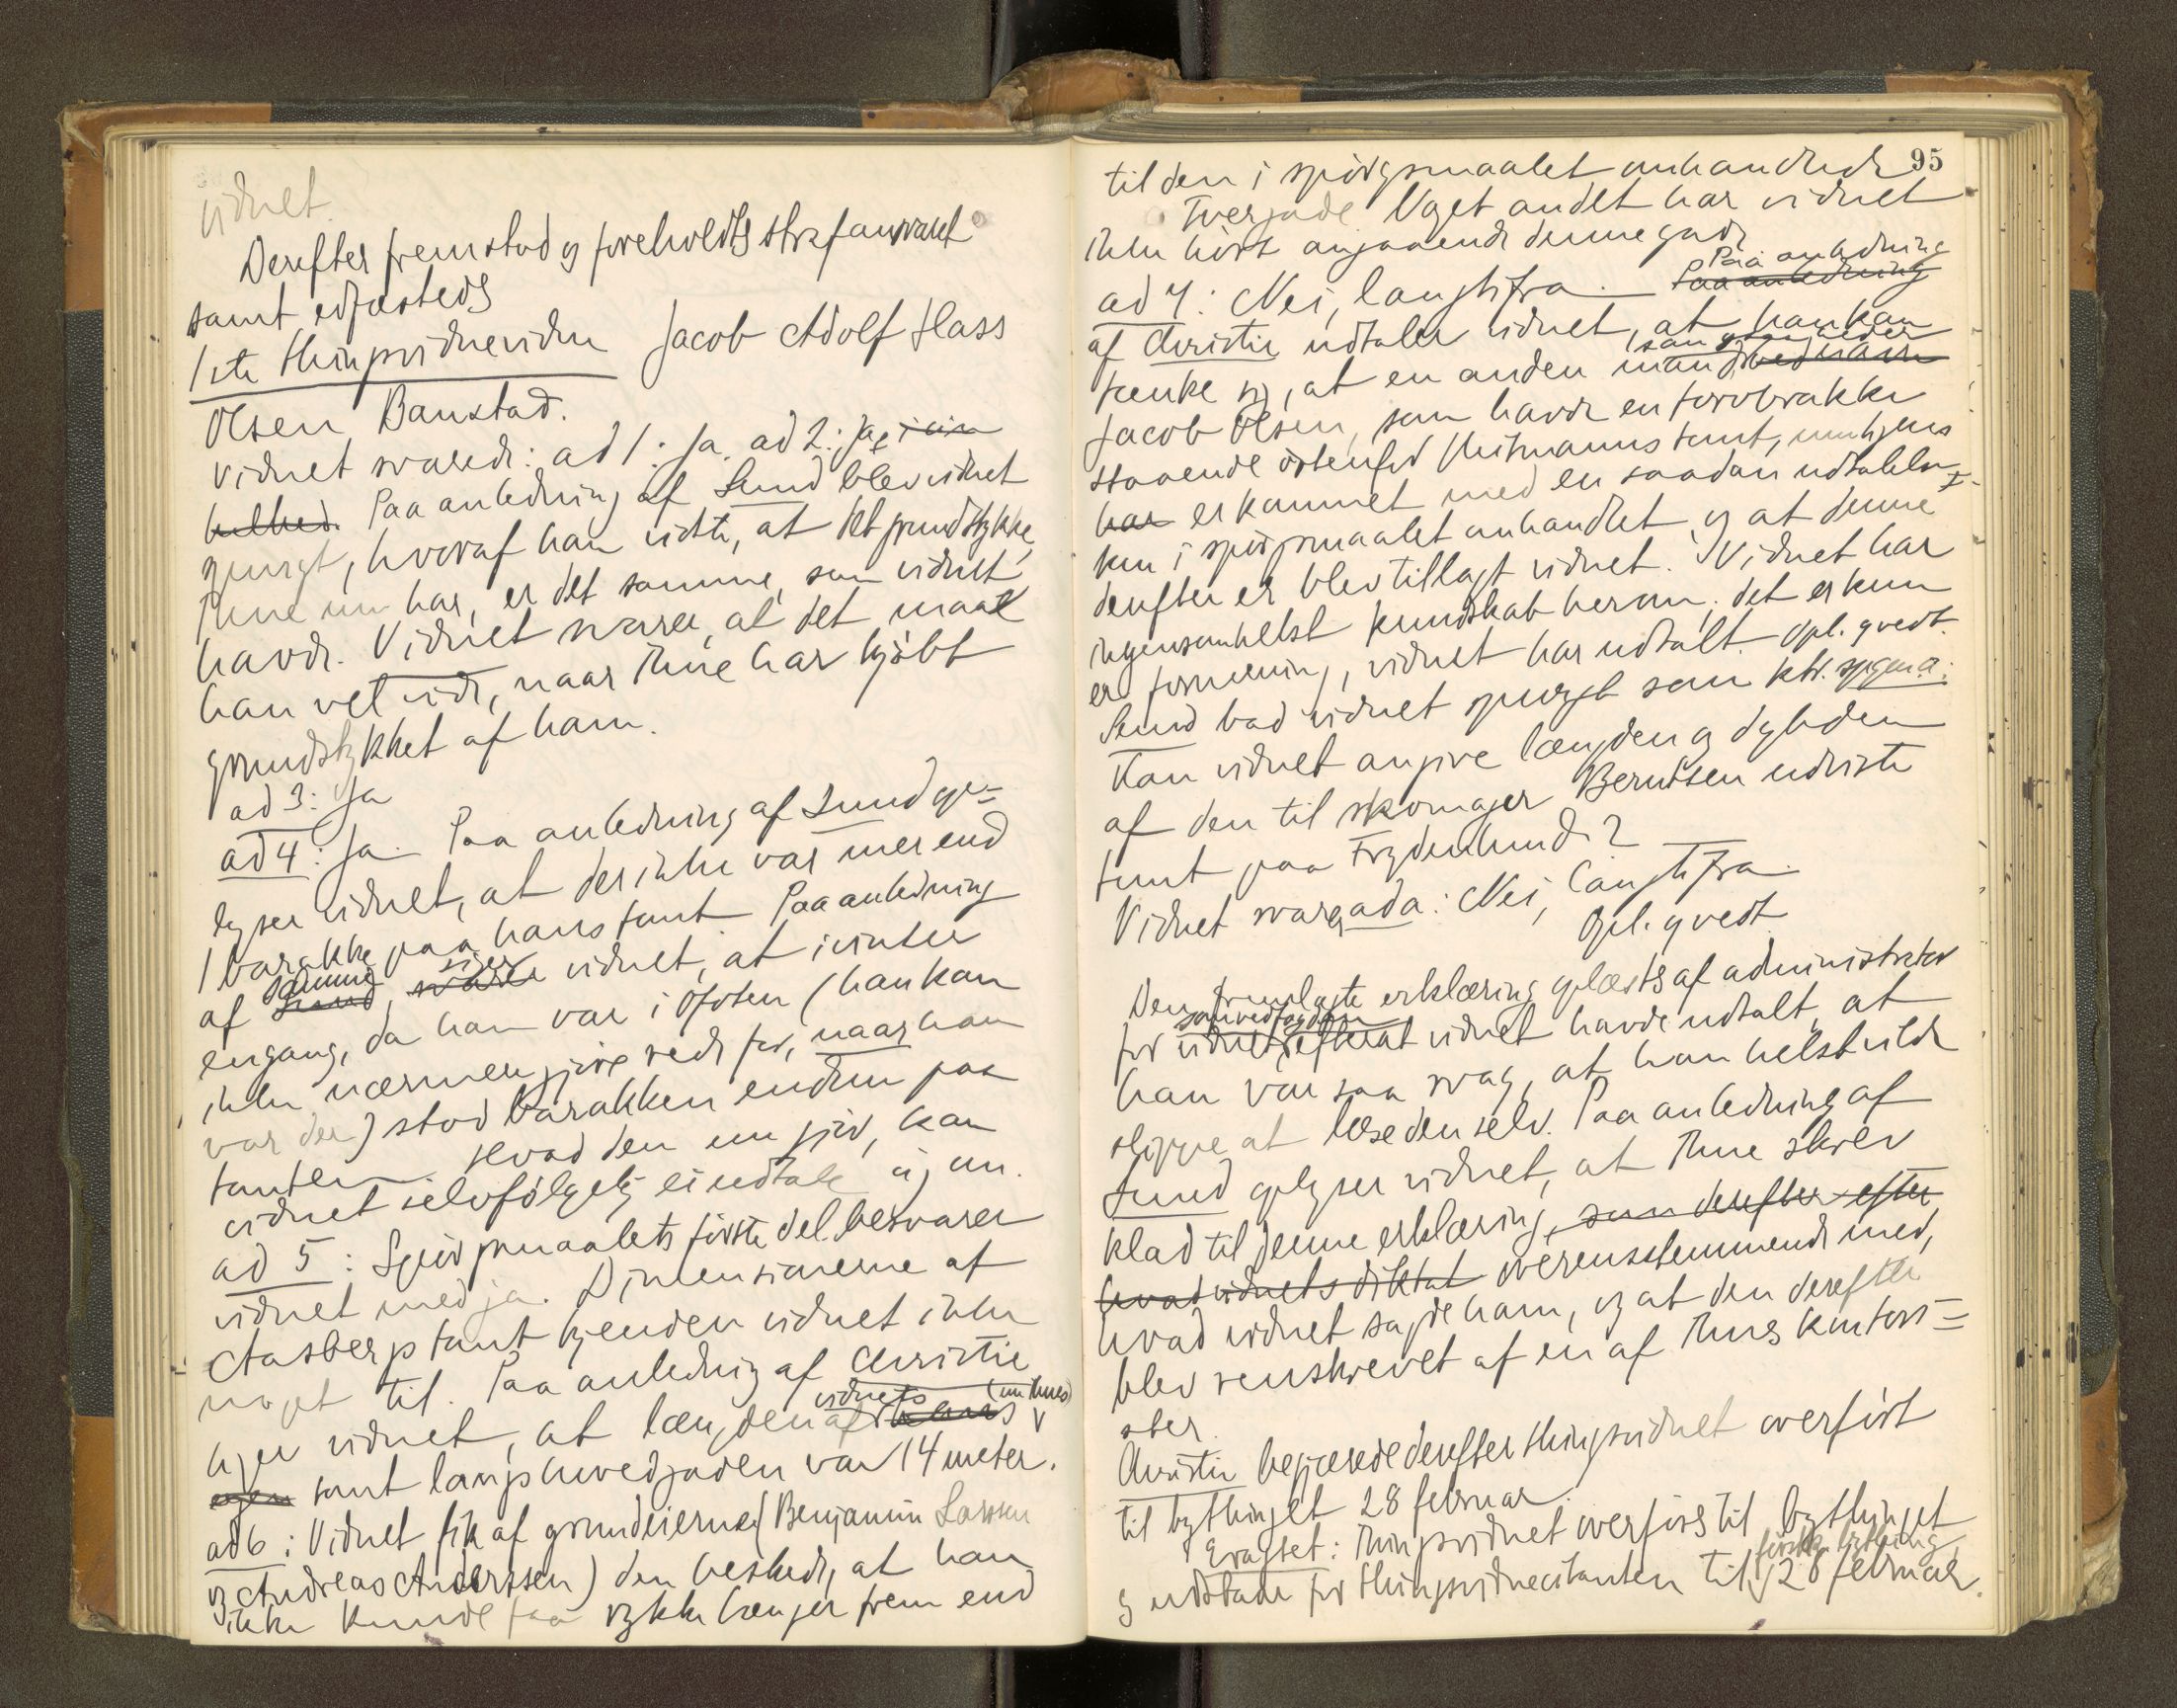 vidnet.
Derefter fremstod og foreholdtes strafansvaret
samt edfæstedes
1ste thingsvidnevidne Jacob Adolf Hass
Olsen Banstad.
Vidnet svarede: ad 1: Ja. ad 2: Ja, i sin
helhed. Paa anledning af Lund blev vidnet
spurgt, hvoraf han vidste, at det grundstykke,
Thue nu har, er det samme, som vidnet
havde. Vidnet svarer, at det maatte
han vel vide, naar Thue har kjøbt
grundstykket af ham.
ad 3: Ja
ad 4: Ja. Paa anledning af Lund op=
lyser vidnet, at der ikke var mer end
1 barakke paa hans tomt. Paa anledning
af samme siger vidnet, at i vinter
engang, da han var i Ofoten (han kan
ikke nærmere gjøre rede for, naar han
var der) stod barakken endnu paa
tomten. Hvad den nu gjør, kan
vidnet selvfølgelig ei udtale sig om.
ad 5: Spørgsmaalets første del besvarer
vidnet med ja. Dimensionerne af
Aasbergs tomt kjender vidnet ikke
noget til. Paa anledning af Christie
siger vidnet, at længden af vidnets (nu Thues)
egen tomt langs hovedgaden var 14 meter.
ad 6: Vidnet fik af grundeierne (Benjamin Larssen
og Andreas Anderssen) den besked, at han
ikke kunde faa rykke længer frem end
95
til den i spørgsmaalet omhandlede
Tvergade. Noget andet har vidnet
ikke hørt angaaende denne gade
ad 7: Nei, langtifra. Paa anledning Paa anledning
af Christie udtaler vidnet, at han kan
tænke sig, at en anden mand, ved navn
Jacob Olsen, som havde en torvbrakke
staaende østenfor Hutmanns tomt,
har er kommet med en saadan udtalelse
som i spørgsmaalet omhandlet og at denne
derefter er blev tillagt vidnet. Vidnet har
ingensomhelst kundskab herom; det er kun
en formening, vidnet har udtalt. Opl. q vedt.
Lund bad vidnet spurgt som ktr. spgm a:
Kan vidnet angive længden og dybden
af den til skomager Berntsen udviste
tomt paa Frydenlund?
Vidnet svarer, ad a: Nei, langtifra.
Opl. q vedt.
Den fremlagte erklæring oplæstes af administrator
for vidnet, efterat vidnet havde udtalt, at
han var saa svag, at han helst vilde
slippe at læse den selv. Paa anledning af
Lund oplyser vidnet, at Thue skrev
klad til denne erklæring, som derefter efter
hvad vidnets diktat overensstemmende med,
hvad vidnet sagde ham, og at den derefter
blev renskrevet af en af Thues kontori=
ster.
Christie begjærede derefter thingsvidnet overført
til bythinget 28 februar.
Eragtet: Thingsvidnet overføres til bythinget
og udstaar for thingsvidnecitanten til første bything 28 februar.